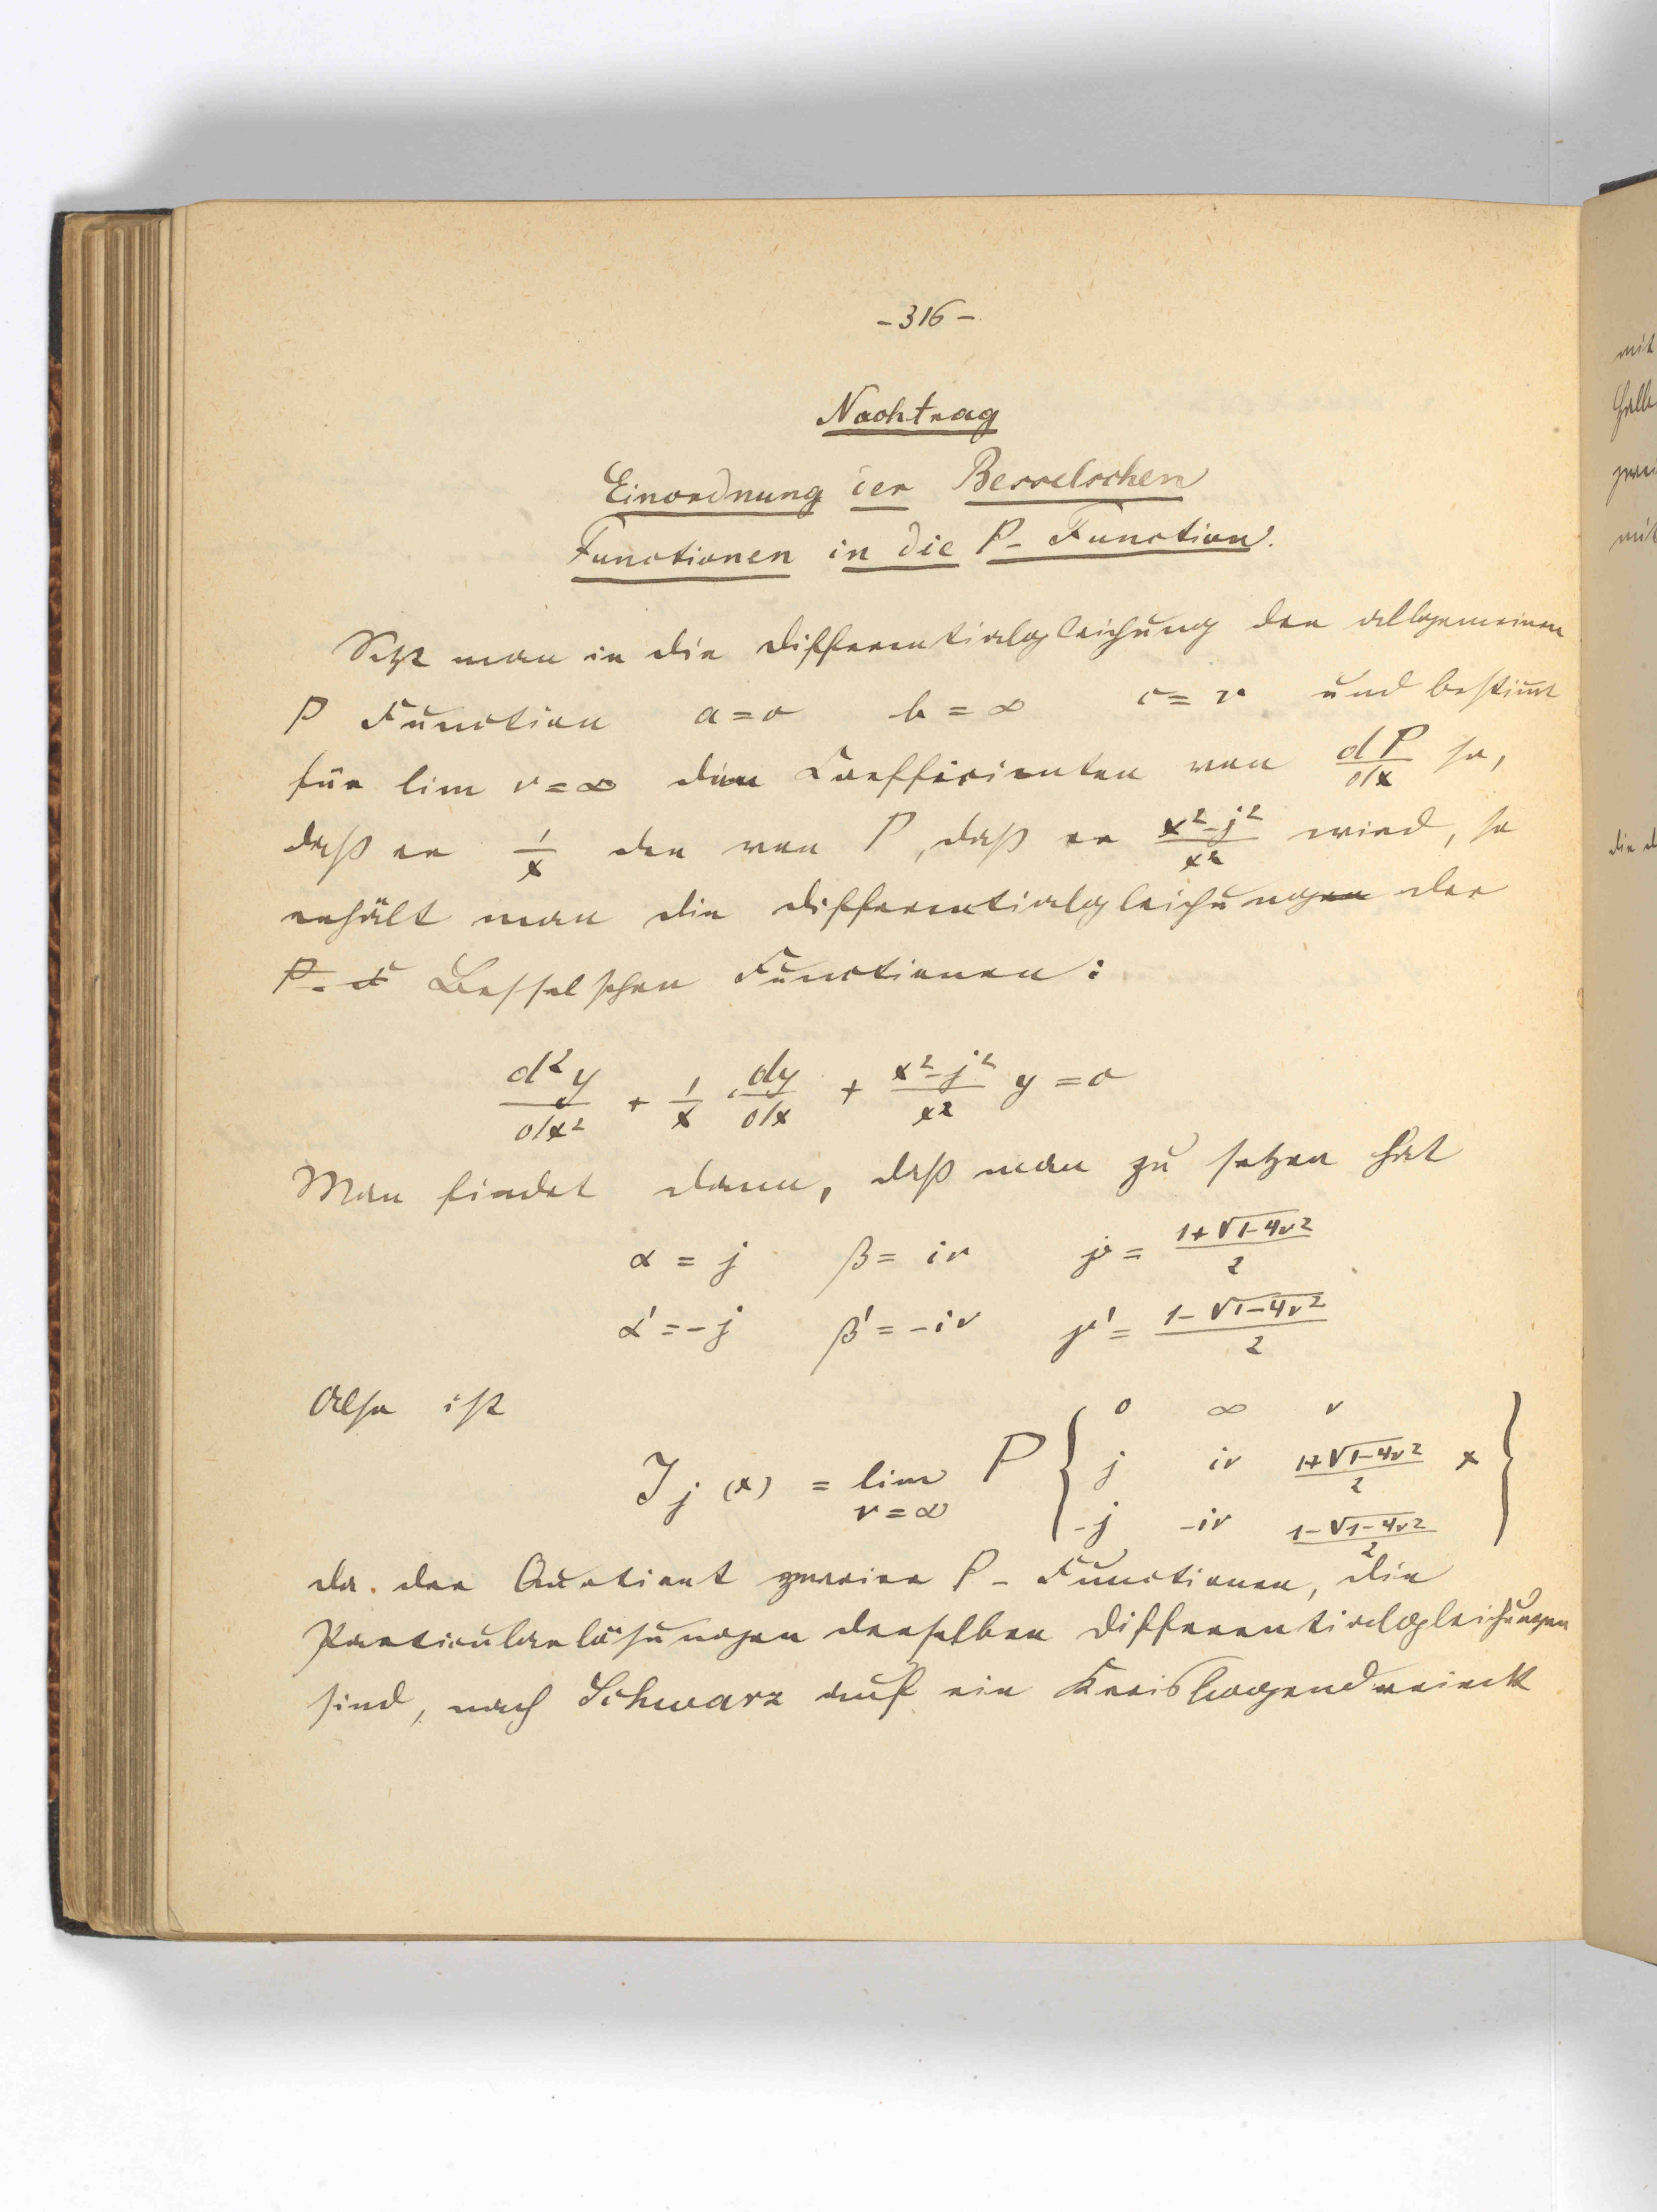 - 316 -
Nachtrag
Einordnung der Besselschen
Functionen in die P- Function.
Setzt man in die Differentialgleichung der allgemeinen
P Function a=0 b=∞ c=r und bestimmt
für lim r=∞ den Coefficienten von dP/dx so,
daß er 1/x den von P, daß er (x²-j²)/x² wird, so
erhält man die Differentialgleichungen der
Besselschen Functionen:
d²y/dx² + 1/x · dy/dx + (x²-j²)/x² y = 0
Man findet dann, daß man zu setzen hat
α = j β = ir γ = (1+√1-4r²)/2
α' = -j β' = -ir γ' = (1-√1-4r²)/2
Also ist
0 ∞ r
J_j (x) = lim P { j ir (1+√1-4r²)/2 x }
r=∞
-j -ir (1-√1-4r²)/2
da der Quotient zweier P- Functionen, die
Particularlösungen derselben Differentialgleichungen
sind, nach Schwarz auf ein Kreisbogendreieck
mit
mit
die